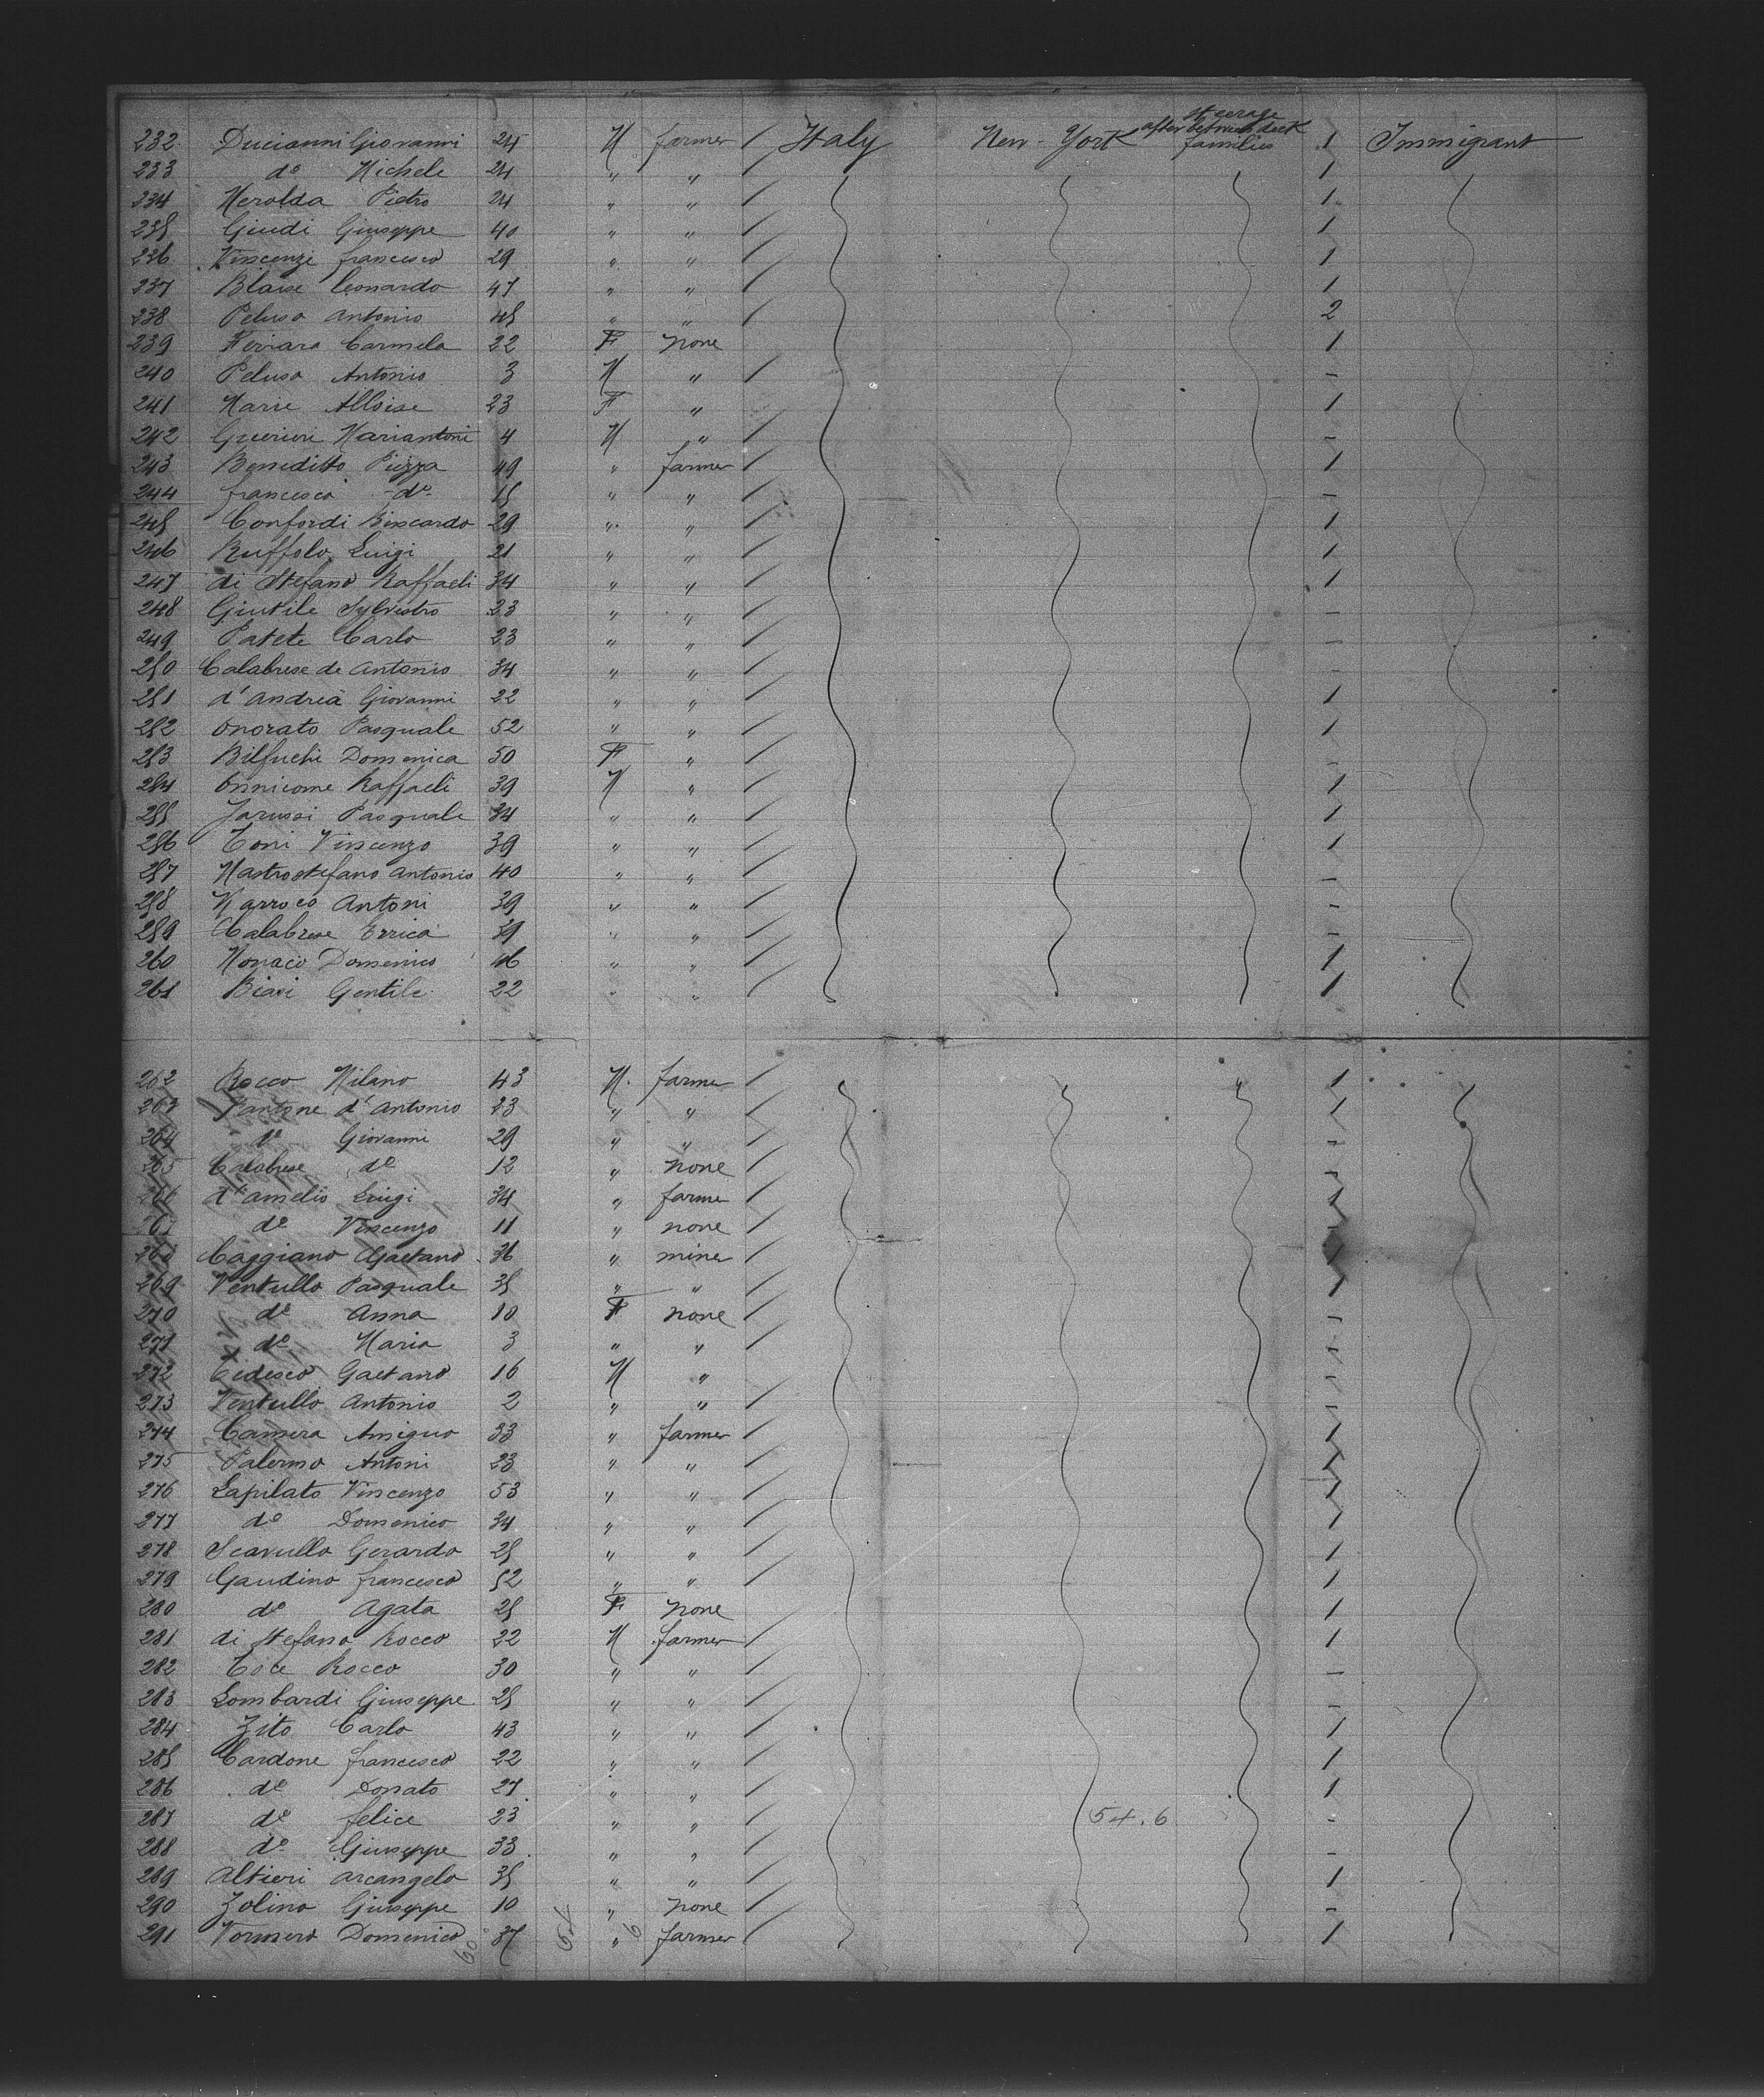 232 Ducianni Giovanni 24 M farmer / Italy New-York steerage after between deck families 1 Immigrant
233 do Michele 24 " " / 1
234 Merolda Pietro 24 " " / 1
235 Giudi Giuseppe 40 " " / 1
236 Vincenzi francesco 29 " " / 1
237 Blaise Leonardo 47 " " / 1
238 Peluso Antonio 45 " " / 2
239 Ferrara Carmela 22 F none 1
240 Peluso Antonio 3 M " / -
241 Marie Alloise 23 F " / 1
242 Guerieri Mariantoni 4 M " / -
243 Beneditto Piuzza 49 " farmer / 1
244 francesco -do- 15 " " / -
245 Confordi Biscardo 29 " " / 1
246 Ruffolo Luigi 21 " " / 1
247 di Stefano Raffaeli 34 " " / 1
248 Giutile Sylvestro 23 " " / -
249 Patete Carlo 23 " " / -
250 Calabrese de Antonio 34 " " / -
251 d'Andrea Giovanni 22 " " / 1
252 Onorato Pasquale 52 " " / 1
253 Bilfuchi Domenica 50 F " / -
254 Onnicome Raffaeli 39 M " / 1
255 Jarussi Pasquale 34 " " / 1
256 Toni Vincenzo 39 " " / 1
257 Mastrostefano Antonio 40 " " / -
258 Marroco Antoni 39 " " / -
259 Calabrese Errico 39 " " / -
260 Monaco Domenico 46 " " / 1
261 Biasi Gentile 22 " " / 1
262 Rocco Milano 43 M. farmer / 1
263 Pantone d'Antonio 23 " " / 1
264 do Giovanni 29 " " / -
265 Calabrese do 12 " none / -
266 d'amelio Luigi 34 " farmer / 1
267 do Vincenzo 11 " none / -
268 Caggiano Gaetano 36 " miner / 1
269 Ventullo Pasquale 35 " " / 1
270 do Anna 10 F none / -
271 do Maria 3 " " / -
272 Tedesco Gaetano 16 M " -
273 Ventullo Antonio 2 " " / -
274 Camera Amiguo 33 " farmer / 1
275 Palermo Antoni 23 " " / 1
276 Lapilato Vincenzo 53 " " / 1
277 do Domenico 34 " " / 1
278 Scavullo Gerardo 25 " " / 1
279 Gaudino francesco 52 " " / 1
280 do Agata 25 F none 1
281 di Stefano Rocco 22 M farmer / 1
282 Toce Rocco 30 " " / -
283 Lombardi Giuseppe 25 " " / -
284 Zito Carlo 43 " " / 1
285 Cardone francesco 22 " " / 1
286 do Donato 27 " " / 1
287 do felice 23 " " / 54.6 -
288 do Giuseppe 33 " " / -
289 Altieri Arcangelo 35 " " / 1
290 Zolino Giuseppe 10 " none / -
291 Vomero Domenico 37 " farmer / 1
60 54 6